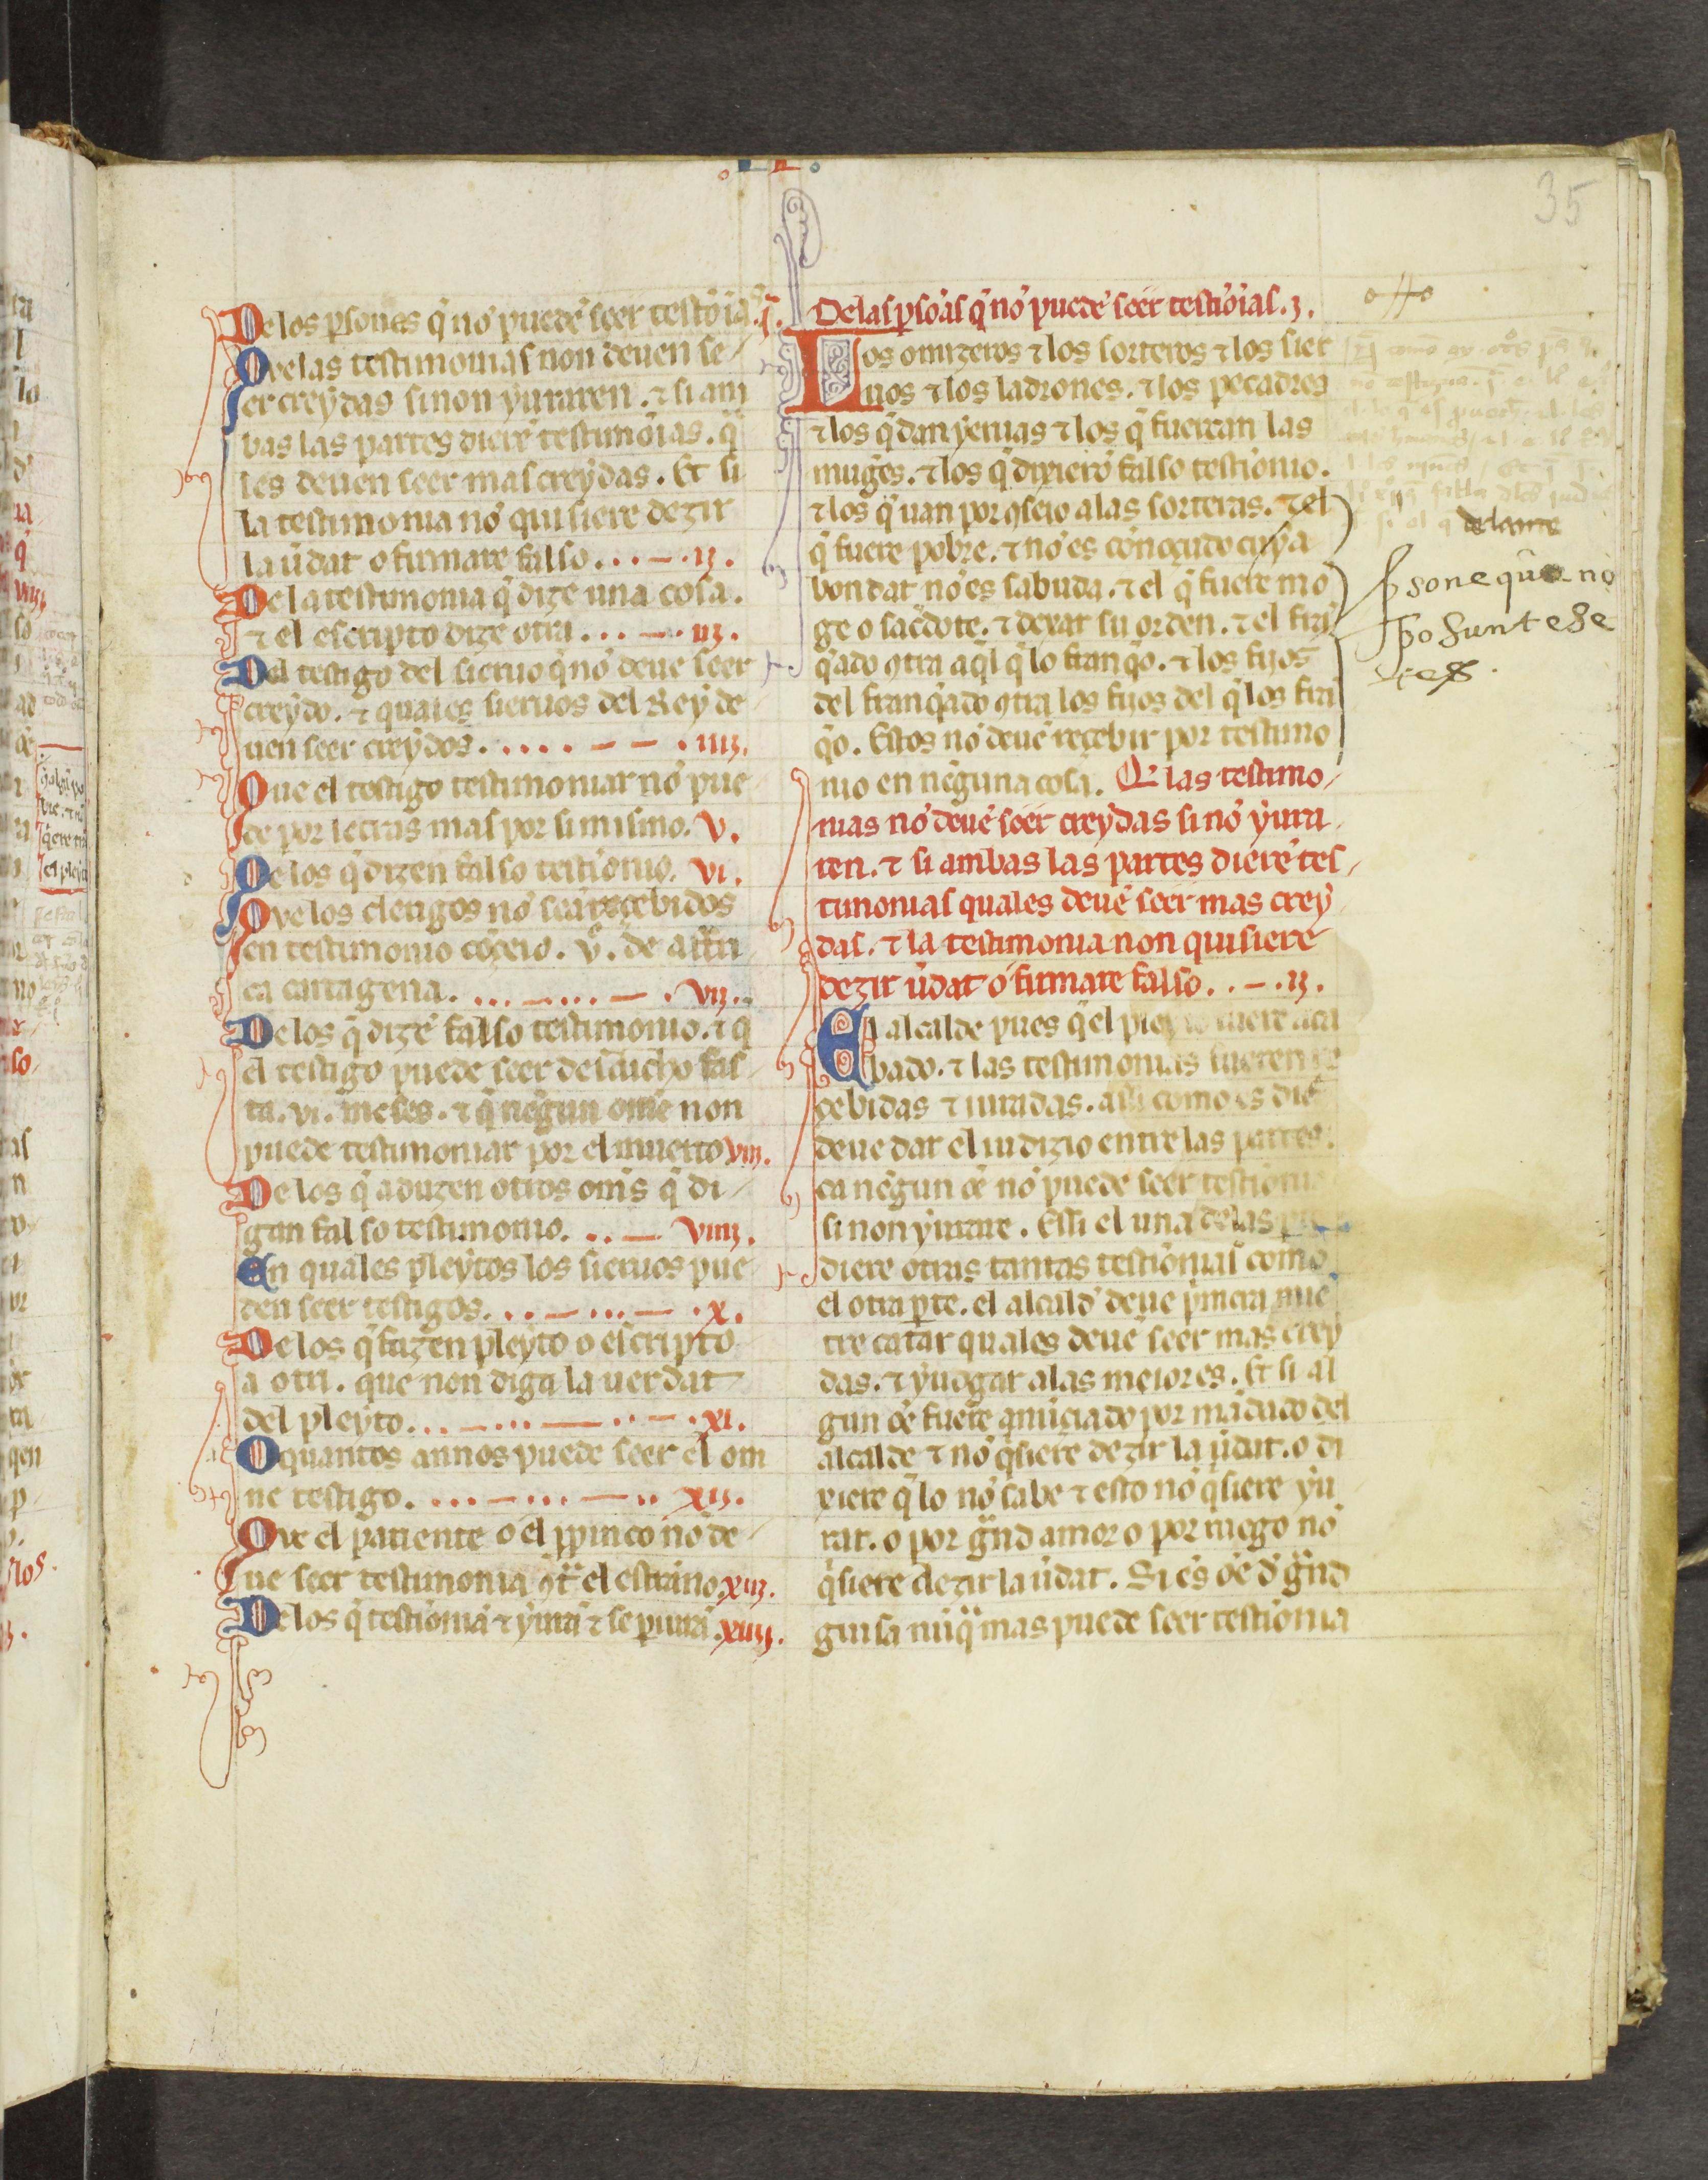 35
De los p̲sonas q̃ nõ puedẽ seer testõias .j.
Que las testimonias non deuen se
er creydas si non yuraren. ⁊ si am
bas las partes dierẽ testimõias. q̃
les deuen seer mas creydas. Et si
la testimonia nõ quisiere dezir
la ũdat o firmare falso . . . — . ij.
De la testimonia q̃ dize una cosa.
⁊ el escripto dize otra . . . — . iij.
Del testigo del sieruo q̃ nõ deue seer
creydo. ⁊ quales sieruos del Rey de
uen seer creydos. . . . . — — . iiij.
Que el testigo testimoniar nõ pue
de por letras mas por si mismo. v.
De los q̃ dizen falso testiõnio. vi.
Que los clerigos nõ sean reçebidos
en testimonio cõçeio. v̊. de affri
ca cartagena. . . . — . . . — . vij.
De los q̃ dizẽ falso testimonio. ⁊ q̃
el testigo puede seer desdicho fas
ta .vi. meses. ⁊ q̃ nẽgun omẽ non
puede testimoniar por el muerto viij.
De los q̃ aduzen otros om̃s q̃ di
gan falso testimonio. . . — viiij.
En quales pleytos los sieruos pue
den seer testigos. . . — . . . — . x.
De los q̃ fazen pleyto o escripto
a otri. que non diga la uerdat
del pleyto. . . — . . . — . . — . xi.
O quantos annos puede seer el om
ne testigo. . . . — . . . — . . xij.
Que el patiente o el p̲pinco nõ de
ue seer testimonia ꝯt̃ el estrãno xiij.
De los q̃ testiõniã ⁊ yurã ⁊ se p̲iurã. xiiij.
De las p̲soãs q̃ nõ puedẽ seer testiõias. j.
Los omizeros ⁊ los sorteros ⁊ los sier
uos ⁊ los ladrones. ⁊ los pecadres
⁊ los q̃ dan yeruas ⁊ los q̃ fuerçan las
mugẽs. ⁊ los q̃ dixierõ falso testiõnio.
⁊ los q̃ uan por ꝯseio a las sorteras. ⁊ el
q̃ fuere pobre. ⁊ nõ es cõnoçudo cuya
bondat nõ es sabuda. ⁊ el q̃ fuere mõ
ge o saçdote. ⁊ dexar su orden. ⁊ el frã
q̃ado ꝯtra aq̃l q̃ lo franq̃o. ⁊ los fijos
del franq̃ado ꝯtra los fijos del q̃ los frã
q̃o. Estos nõ deuẽ reçebir por testimo
nio en nẽguna cosa. Q̃ las testimo
nias nõ deuẽ seer creydas si nõ yura
ren. ⁊ si ambas las partes dierẽ tes
timonias quales deuẽ seer mas crey
das. ⁊ la testimonia non quisiere
dezir ũdat o firmare falso . . — . ij.
El alcalde pues q̃ el pleyto fuere aca
bado. ⁊ las testimonias fueren re
çebidas ⁊ iuradas. assi como es dic̃
deue dar el iudizio entre las partes.
ca nẽgun oẽ nõ puede seer testiõnia
si non yurare. Essi el una de las p̲
diere otras tantas testiõnias como
el otra p̲te. el alcald̃ deue p̃mera mẽ
tre catar quales deuẽ seer mas crey
das. ⁊ yudgar a las meiores. Et si al
gun oẽ fuere anũçiado por mãdado del
alcalde ⁊ nõ q̃siere dezir la ũdat. o di
xiere q̃ lo nõ sabe ⁊ esto nõ q̃siere yu
rar. o por g̃nd amor o por ruego nõ
q̃siere dezir la ũdat. Si es oẽ d̃ g̃nd
guisa nũq̃ mas puede seer testiõnia
delante
p̲sone que no
posunt ese
tes.